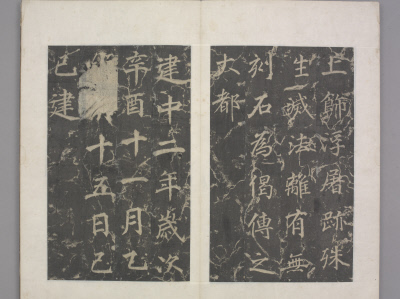 上歸浮屠跡殊
生滅法離有無
刻石為偈傳之
大都
建中二年歲次
辛酉十一月乙
十五日己
巳建